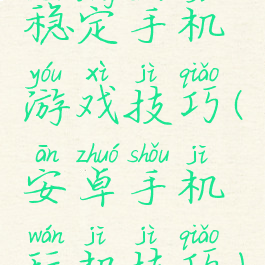 稳定手机
yóu xì jì qiǎo
游戏技巧(
ān zhuó shǒu jī
安卓手机
wán jī jì qiǎo
玩机技巧)